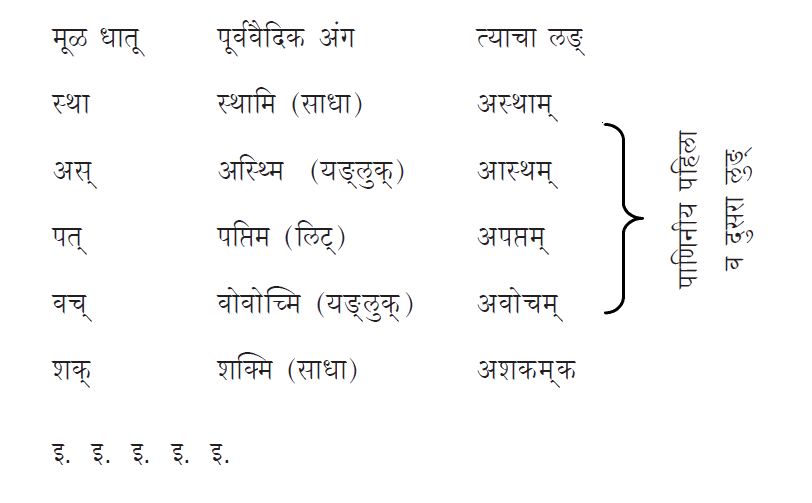 मूळ धातू पूर्ववैदिक अंग त्याचा लङ्
स्था स्थामि (साधा) अस्थाम्
अस् अस्थ्मि (यङ्लुक्) आस्थम्
पत् पप्तिम (लिट्) अपप्तम्
वच् वोवोच्मि (यङ्लुक्) अवोचम्
शक् शक्मि (साधा) अशकम्क
इ. इ. इ. इ. इ.
पाणिनीय पहिला
व दुसरा लुङ्